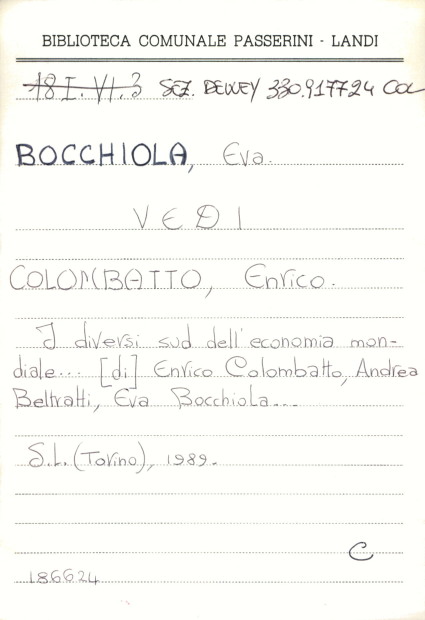 BIBLIOTECA COMUNALE PASSERINI - LANDI
18 I. VI. 3 SEZ. DEWEY 330.917724 COL
BOCCHIOLA, Eva.
VEDI
COLOMBATTO, Enrico.
I diversi sud dell'economia mon-
diale... [di] Enrico Colombatto, Andrea
Beltratti, Eva Bocchiola...
S.l. (Torino), 1989.
C
186624